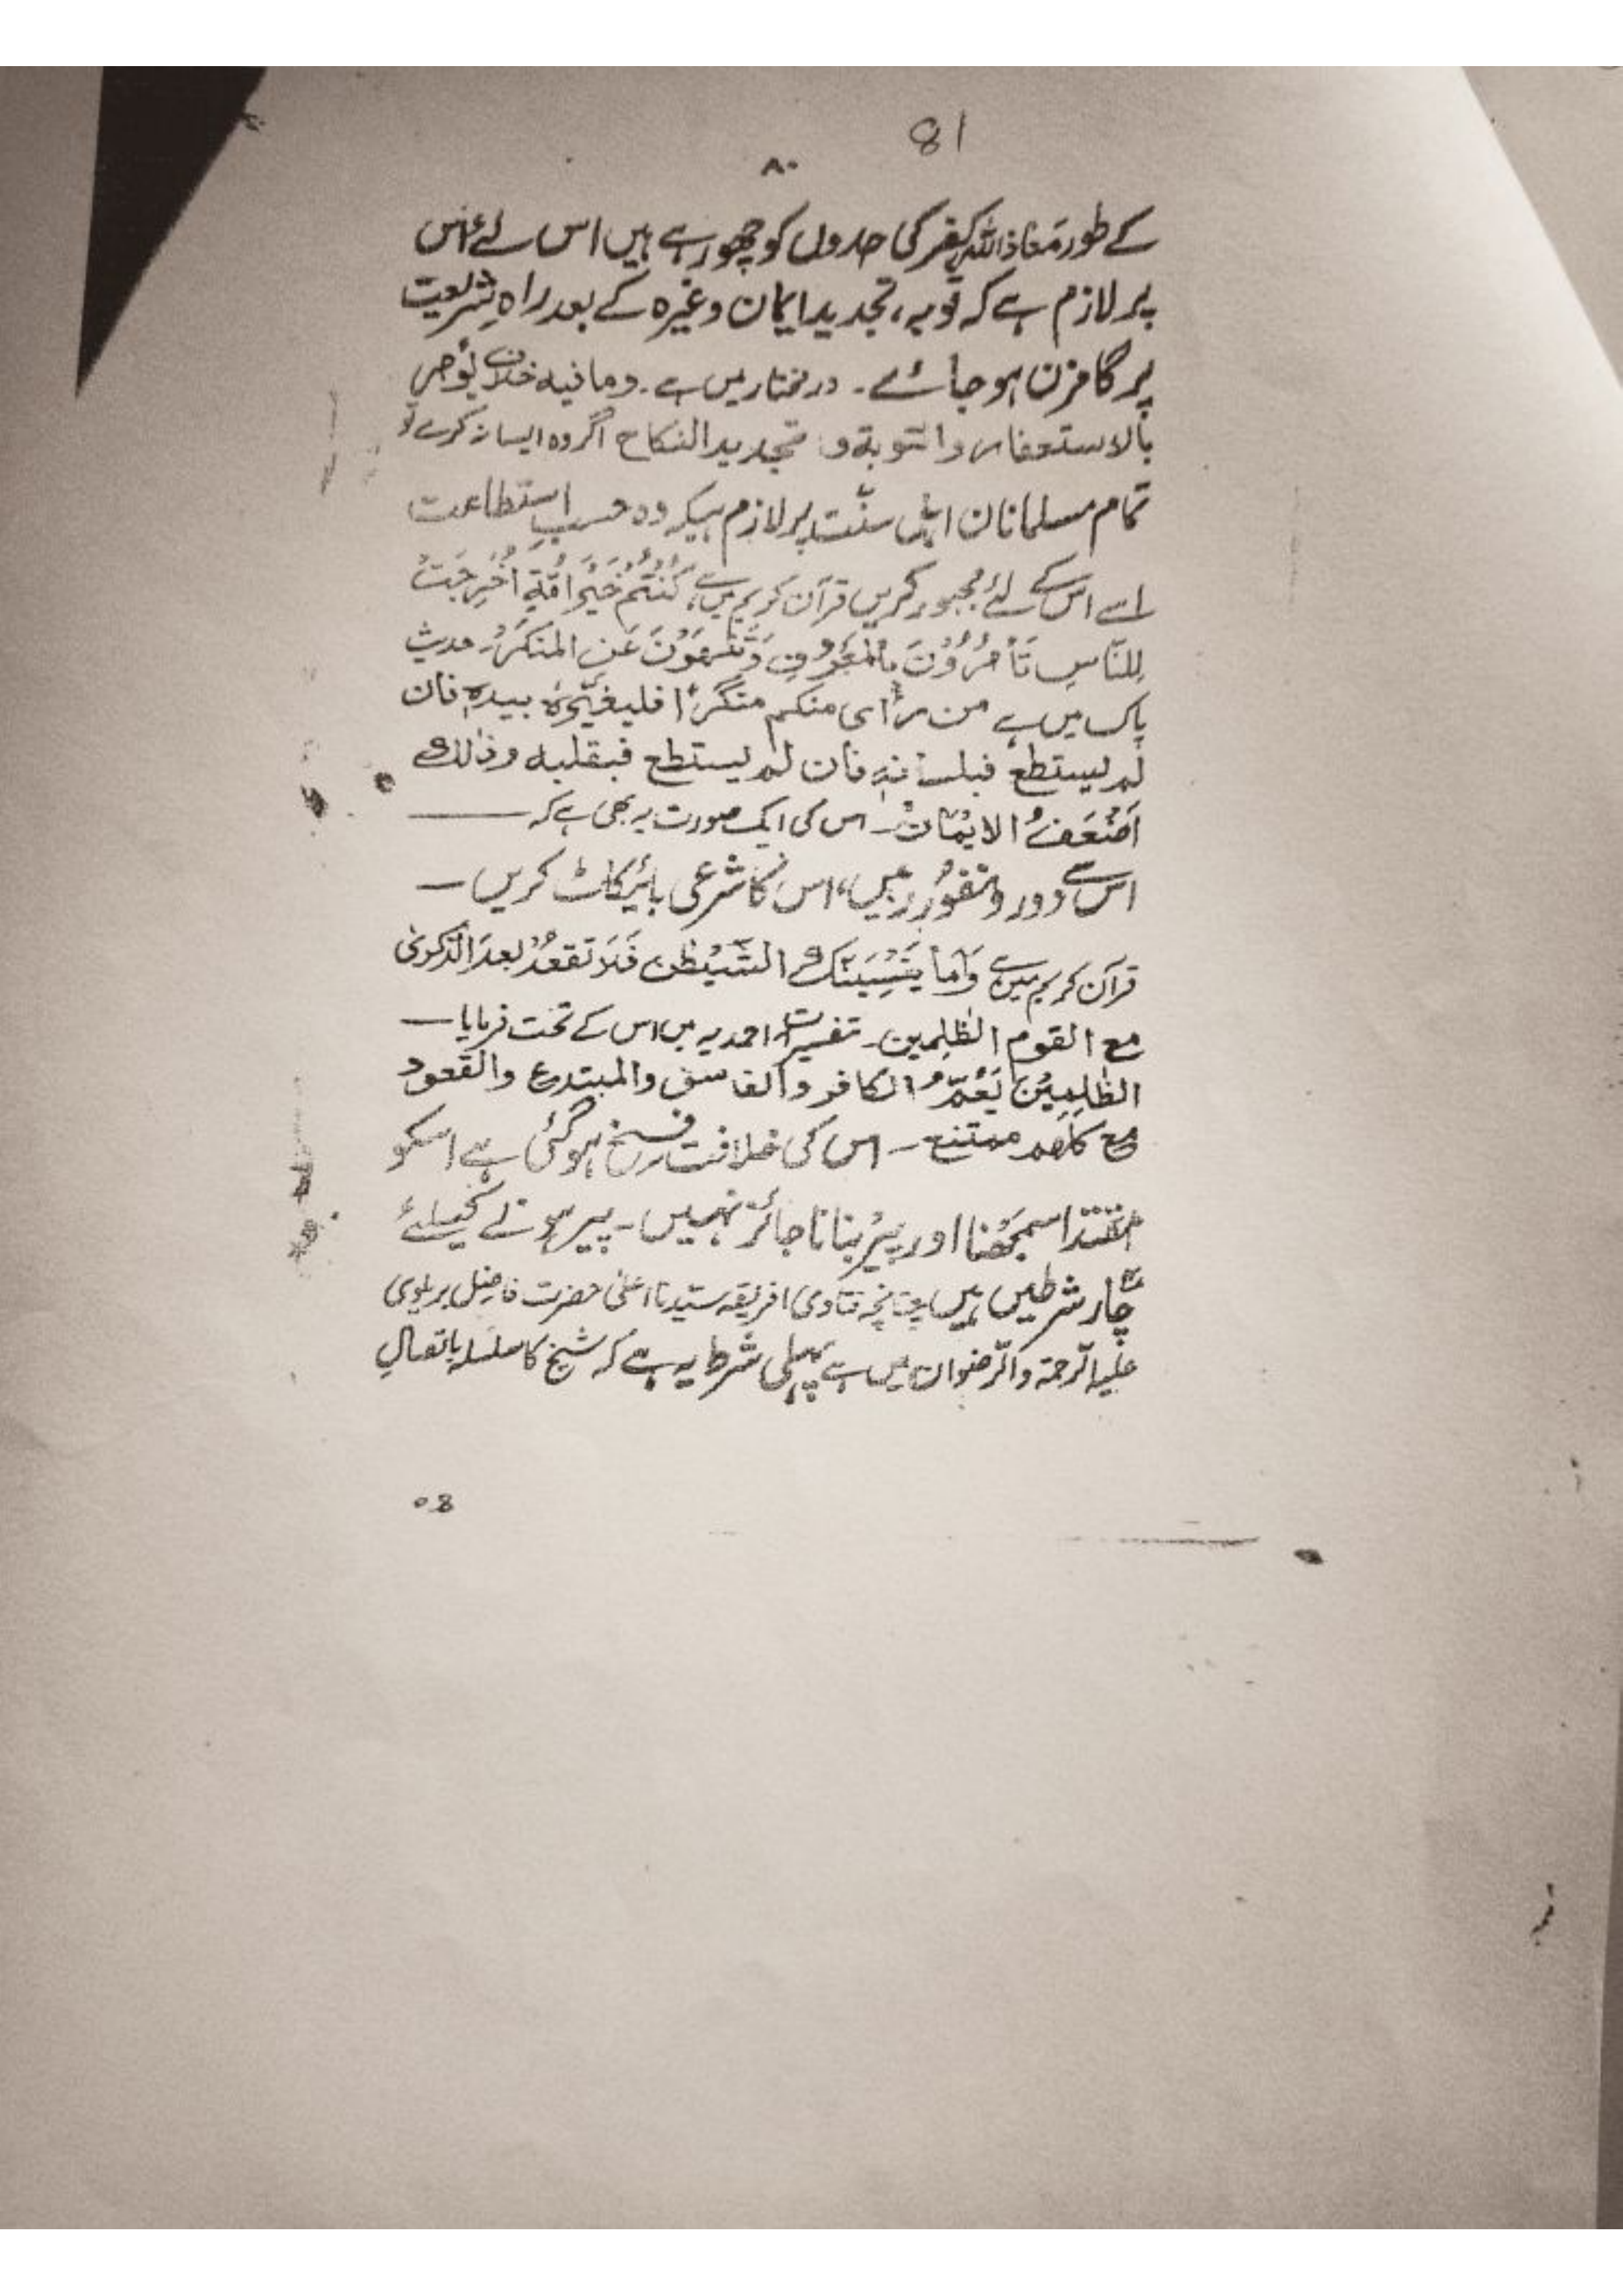 81
۸۰
کے طور معاذ اللہ کفر کی حدوں کو چھو رہے ہیں اس لئے اس
پر لازم ہے کہ توبہ، تجدید ایمان وغیرہ کے بعد راہِ شریعت
پر گامزن ہو جائے۔ درمختار میں ہے۔ وما فیہ خلاف یؤمر
بالاستغفار والتوبۃ و تجدید النکاح اگر وہ ایسا نہ کرے تو
تمام مسلمانان اہل سنّت پر لازم ہیکہ وہ حسبِ استطاعت
اسے اس کے لئے مجبور کریں قرآن کریم میں ہے، کُنْتُمْ خَیْرَ اُمَّۃٍ اُخْرِجَتْ
لِلنَّاسِ تَأْمُرُوْنَ بِالْمَعْرُوْفِ وَتَنْهَوْنَ عَنِ المنکَرِ۔ حدیث
پاک میں ہے من رأی منکم منکرًا فلیغیّرہُ بیدہٖ فان
لم یستطع فبلسانہٖ فان لم یستطع فبقلبہ وذٰلک
اَضْعَفُ الایْمَان۔ اس کی ایک صورت یہ بھی ہے کہ ——
اس سے دور و نفور رہیں، اس کا شرعی بائیکاٹ کریں —
قرآن کریم میں ہے وَاَمَّا یُنْسِیَنَّکَ الشَّیْطٰن فَلَا تَقعُدْ بعدَ الذِّکرىٰ
مع القوم الظّٰلِمین۔ تفسیرات احمدیہ میں اس کے تحت فرمایا —
الظّٰلِمِیْنَ یَعُمُّ الکافر والفاسق والمبتدع والقعود
مع کلهم ممتنع۔ اس کی خلافت فسخ ہو گئی ہے اسکو
مقتدا سمجھنا اور پیر بنانا جائز نہیں۔ پیر ہونے کیلئے
چار شرطیں ہیں چنانچہ فتاوی افریقہ سیّدنا اعلیٰ حضرت فاضل بریلوی
علیہ الرّحمۃ والرّضوان میں ہے پہلی شرط یہ ہے کہ شیخ کا سلسلہ باتصالِ
80